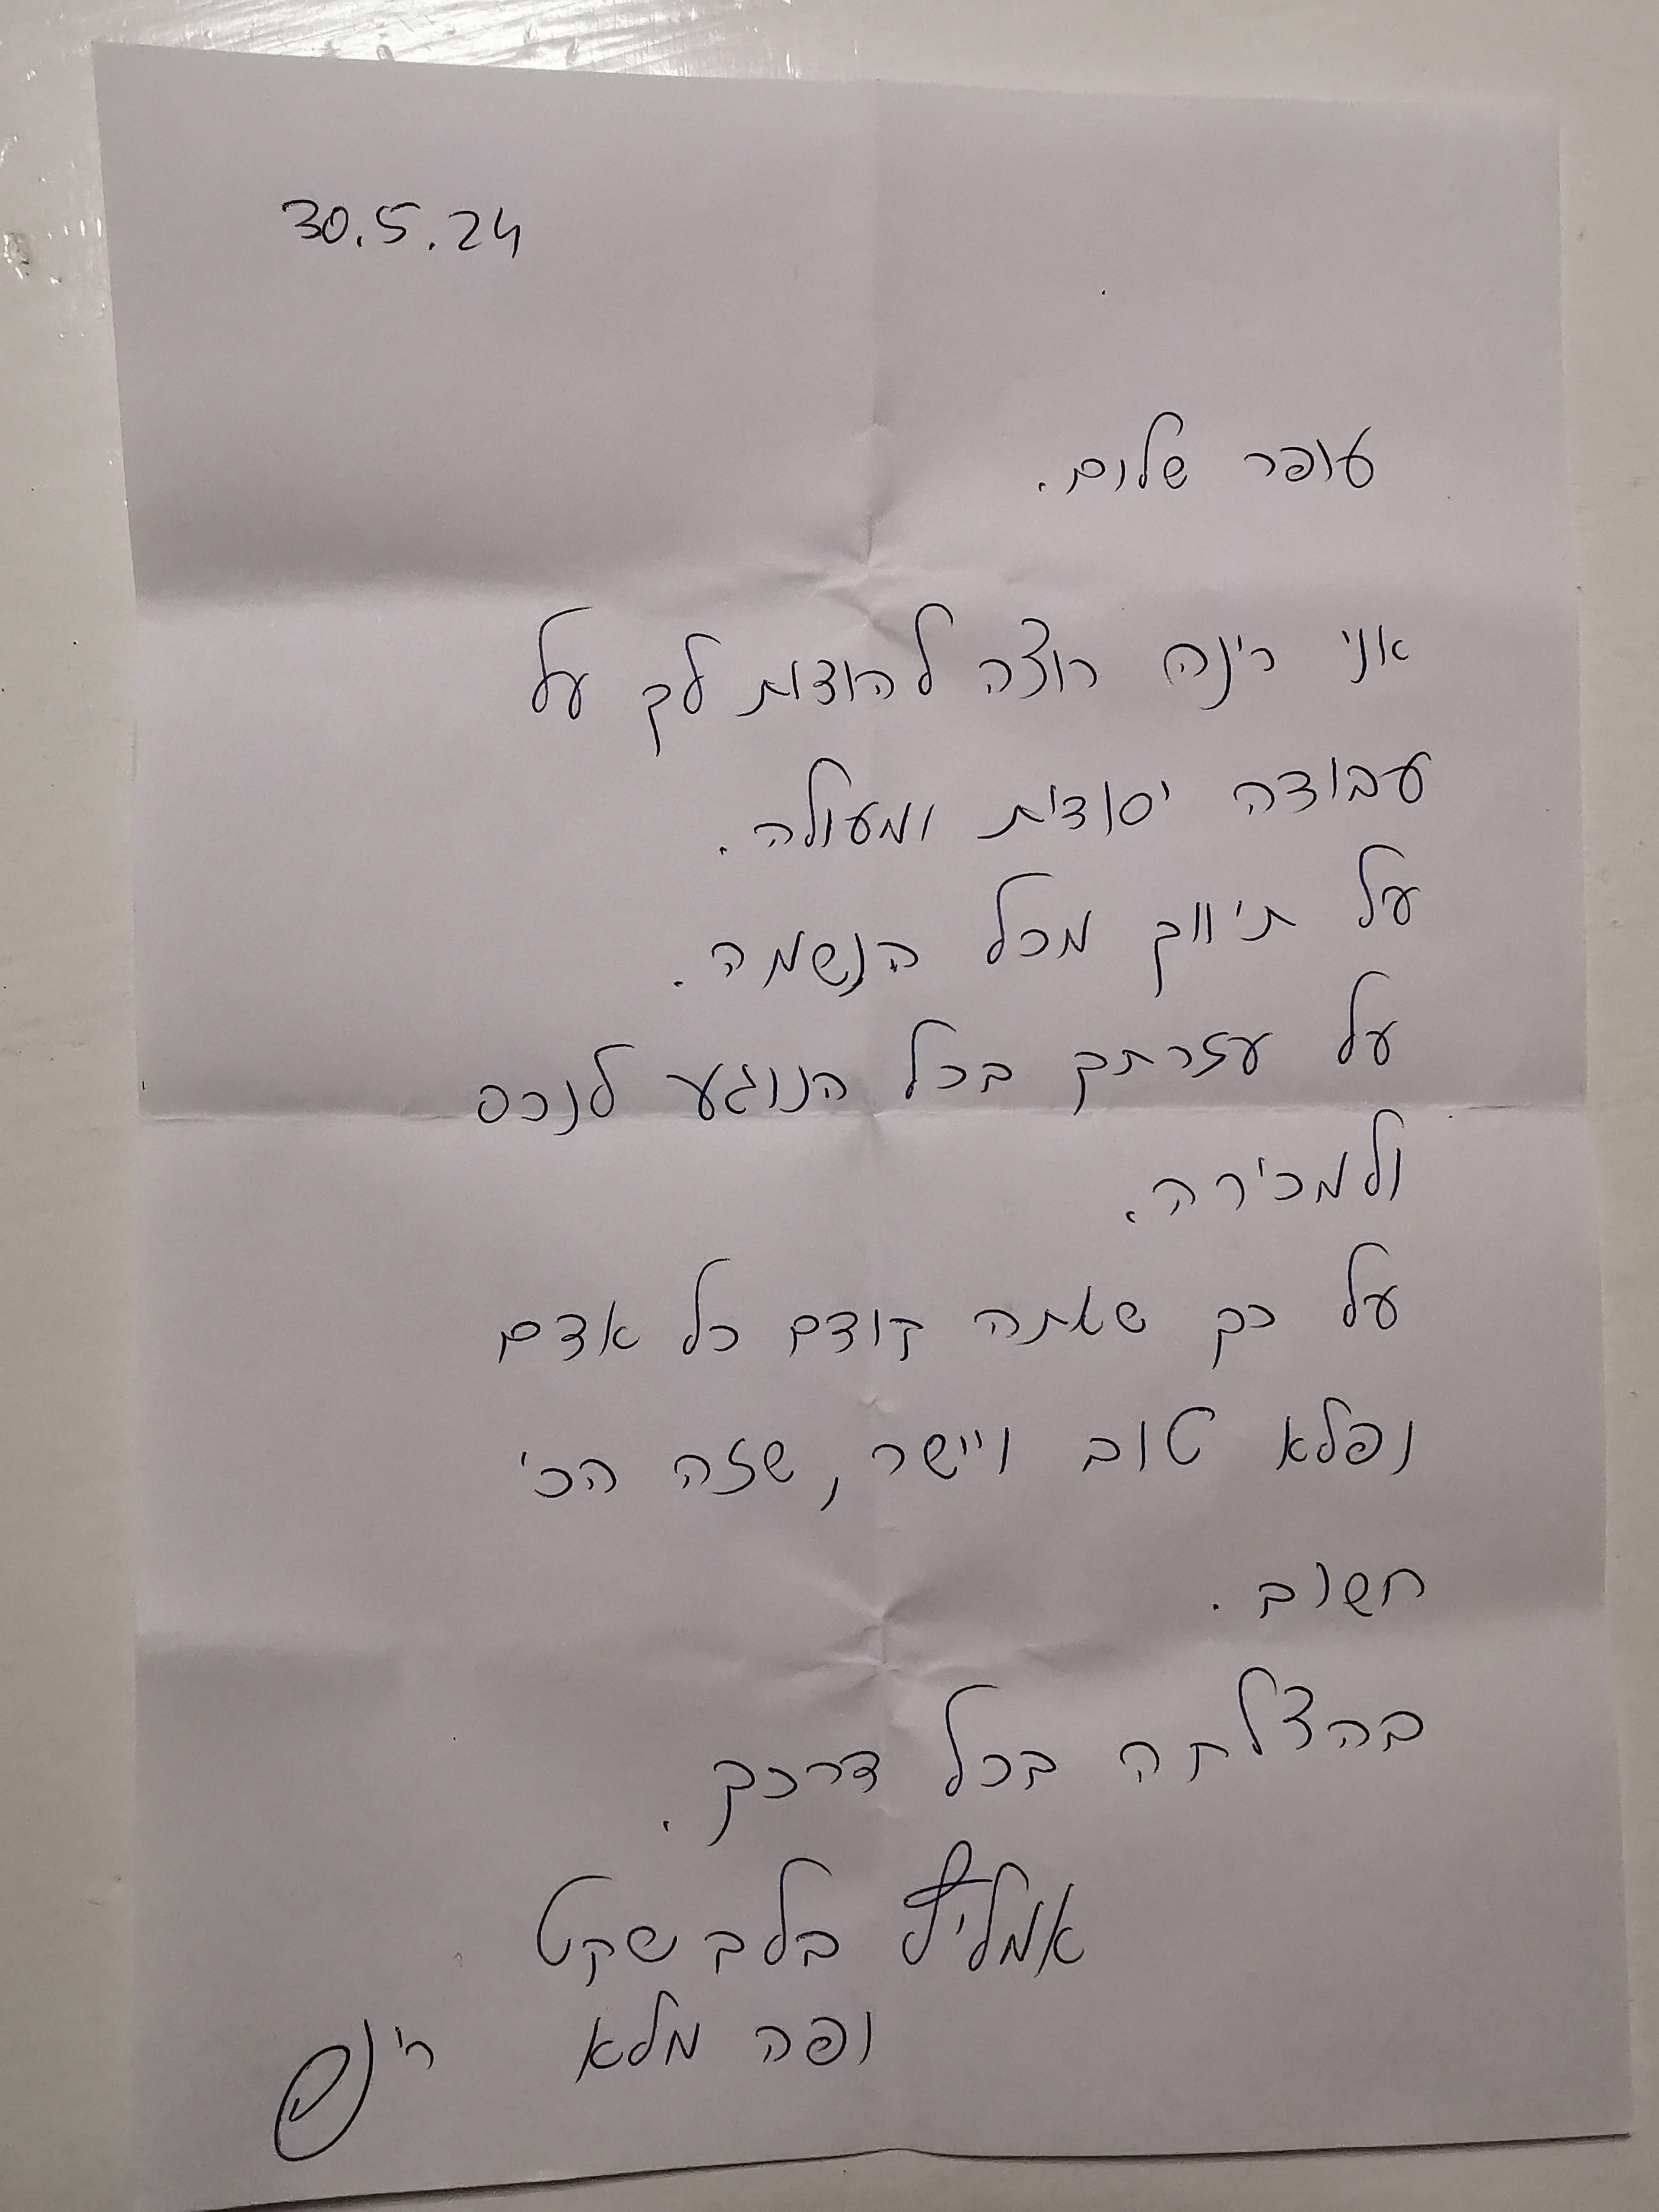 30.5.24
עופר שלום.
אני רינה רוצה להודות לך על
עבודה יסודית ומעולה.
על תיווך מכל הנשמה.
על עזרתך בכל הנוגע לנכס
ולמכירה.
על כך שאתה קודם כל אדם
נפלא טוב ויישר, שזה הכי
חשוב.
בהצלחה בכל דרכך.
בלב שקט
ופה מלא רינה